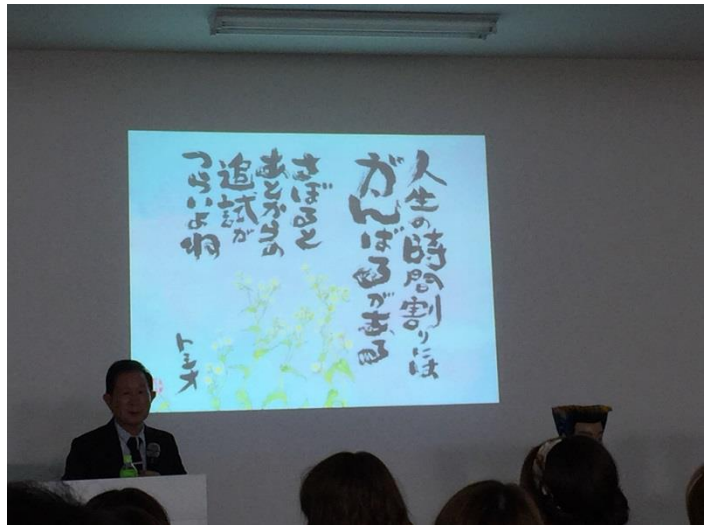 人生の時間割りには
がんばるがある
さぼると
あとからの
追試が
つらいよね
トシオ